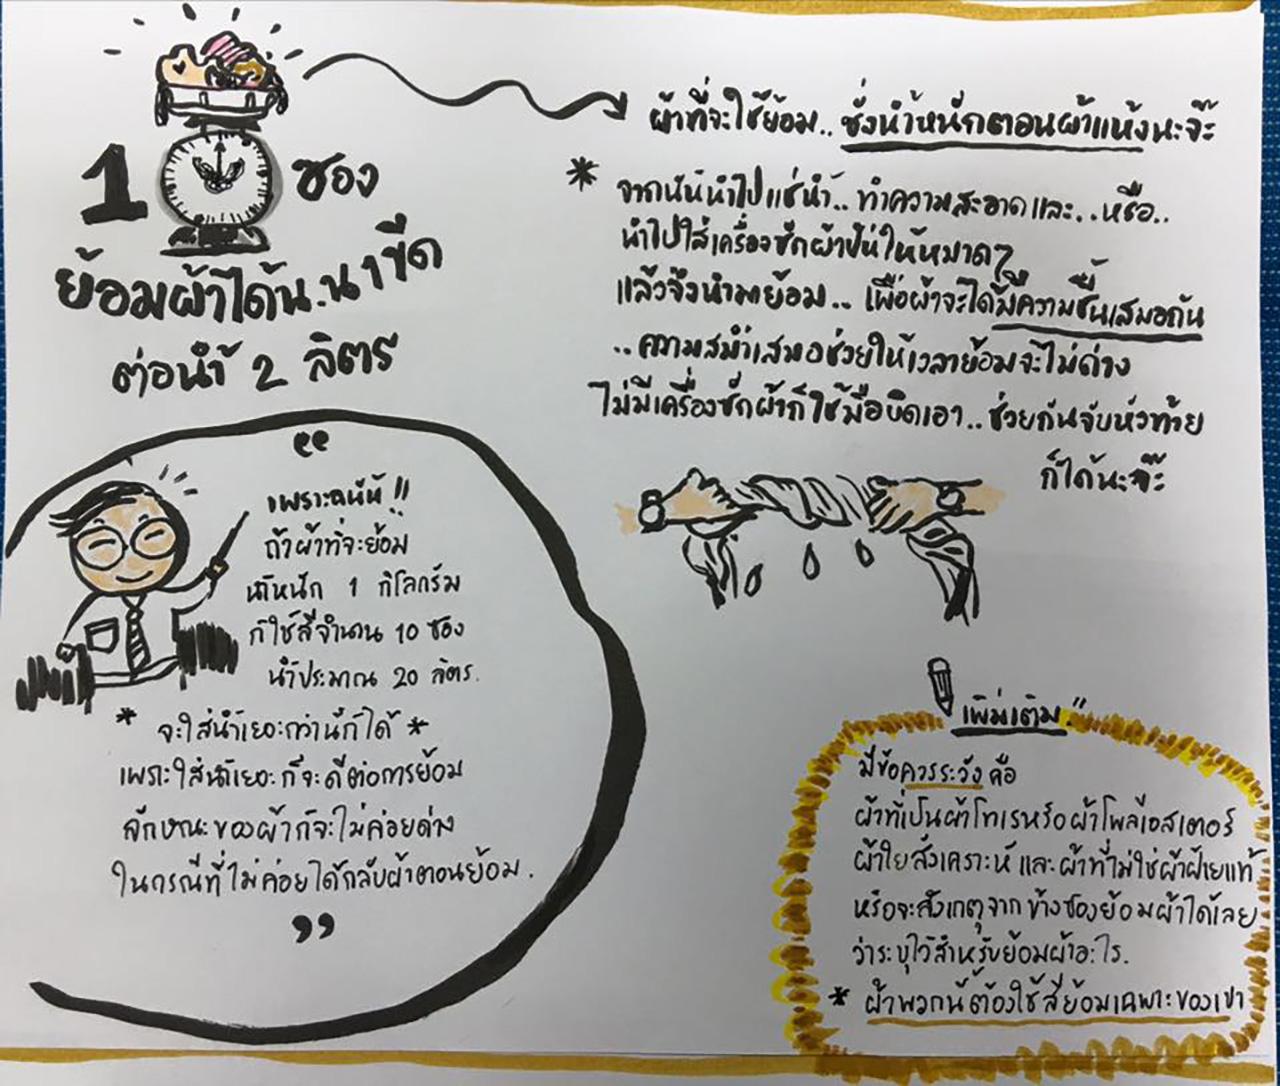 1 ซอง
ย้อมผ้าได้น.น 1 ขีด
ต่อน้ำ 2 ลิตร
ผ้าที่จะใช้ย้อม.. ชั่งน้ำหนักตอนผ้าแห้งนะจ๊ะ
* จากนั้นนำไปแช่น้ำ.. ทำความสะอาดและ...หรือ..
นำไปใส่เครื่องซักผ้าปั่นให้หมาดๆ
แล้วจึงนำมาย้อม... เพื่อผ้าจะได้มีความชื้นเสมอกัน
..ความสม่ำเสมอช่วยให้เวลาย้อมจะไม่ด่าง
ไม่มีเครื่องซักผ้าก็ใช้มือบิดเอา.. ช่วยกันจับหัวท้าย
ก็ได้นะจ๊ะ
“
เพราะฉนั้น!!
ถ้าผ้าที่จะย้อม
น้ำหนัก 1 กิโลกรัม
ก็ใช้สีจำนวน 10 ซอง
น้ำประมาณ 20 ลิตร.
* จะใส่น้ำเยอะกว่านี้ก็ได้ *
เพราะใส่น้ำเยอะก็จะดีต่อการย้อม
ลักษณะของผ้าก็จะไม่ค่อยด่าง
ในกรณีที่ไม่ค่อยได้กลับผ้าตอนย้อม.
”
เพิ่มเติม..
มีข้อควรระวังคือ
ผ้าที่เป็นผ้าโทเรหรือผ้าโพลีเอสเตอร์
ผ้าใยสังเคราะห์ และผ้าที่ไม่ใช่ผ้าฝ้ายแท้
หรือจะสังเกตุจากข้างซองย้อมผ้าได้เลย
ว่าระบุไว้สำหรับย้อมผ้าอะไร.
* ผ้าพวกนี้ต้องใช้สีย้อมเฉพาะของเขา